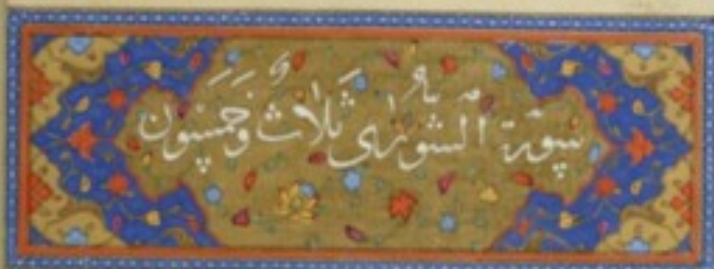 سورة الشورى ثلاث وخمسون